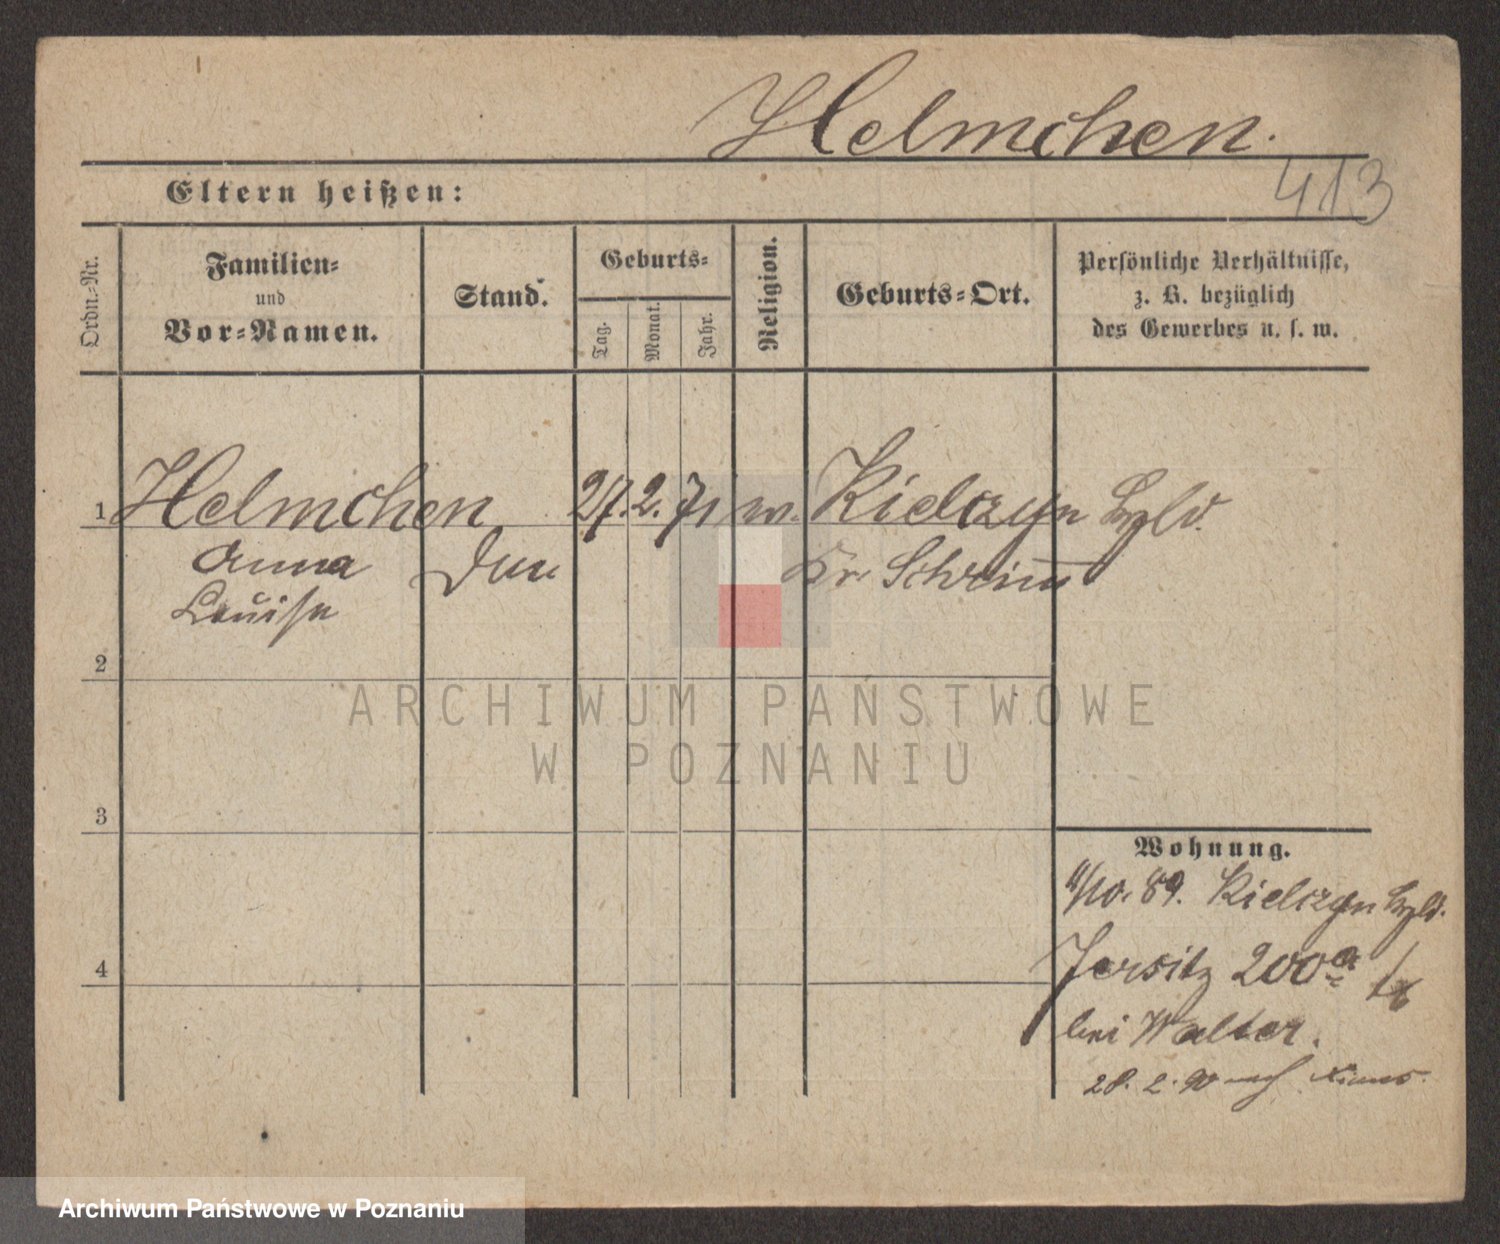 Helmchen.
413
Eltern heißen:
Ordn.-Nr.
Familien-
und
Vor-Namen.
Stand.
Geburts-
Tag.
Monat.
Jahr.
Religion.
Geburts-Ort.
Persönliche Verhältnisse,
z. B. bezüglich
des Gewerbes u. s. w.
1 Helmchen 27. 2. 71 Kielczyn
Anna Kr. Schrimm
Louise
2
3
4
Wohnung.
/10. 89. Kielczyn
Jersitz 200a
bei Walter.
28. 2. 90 nach
ARCHIWUM PAŃSTWOWE
W POZNANIU
Archiwum Państwowe w Poznaniu